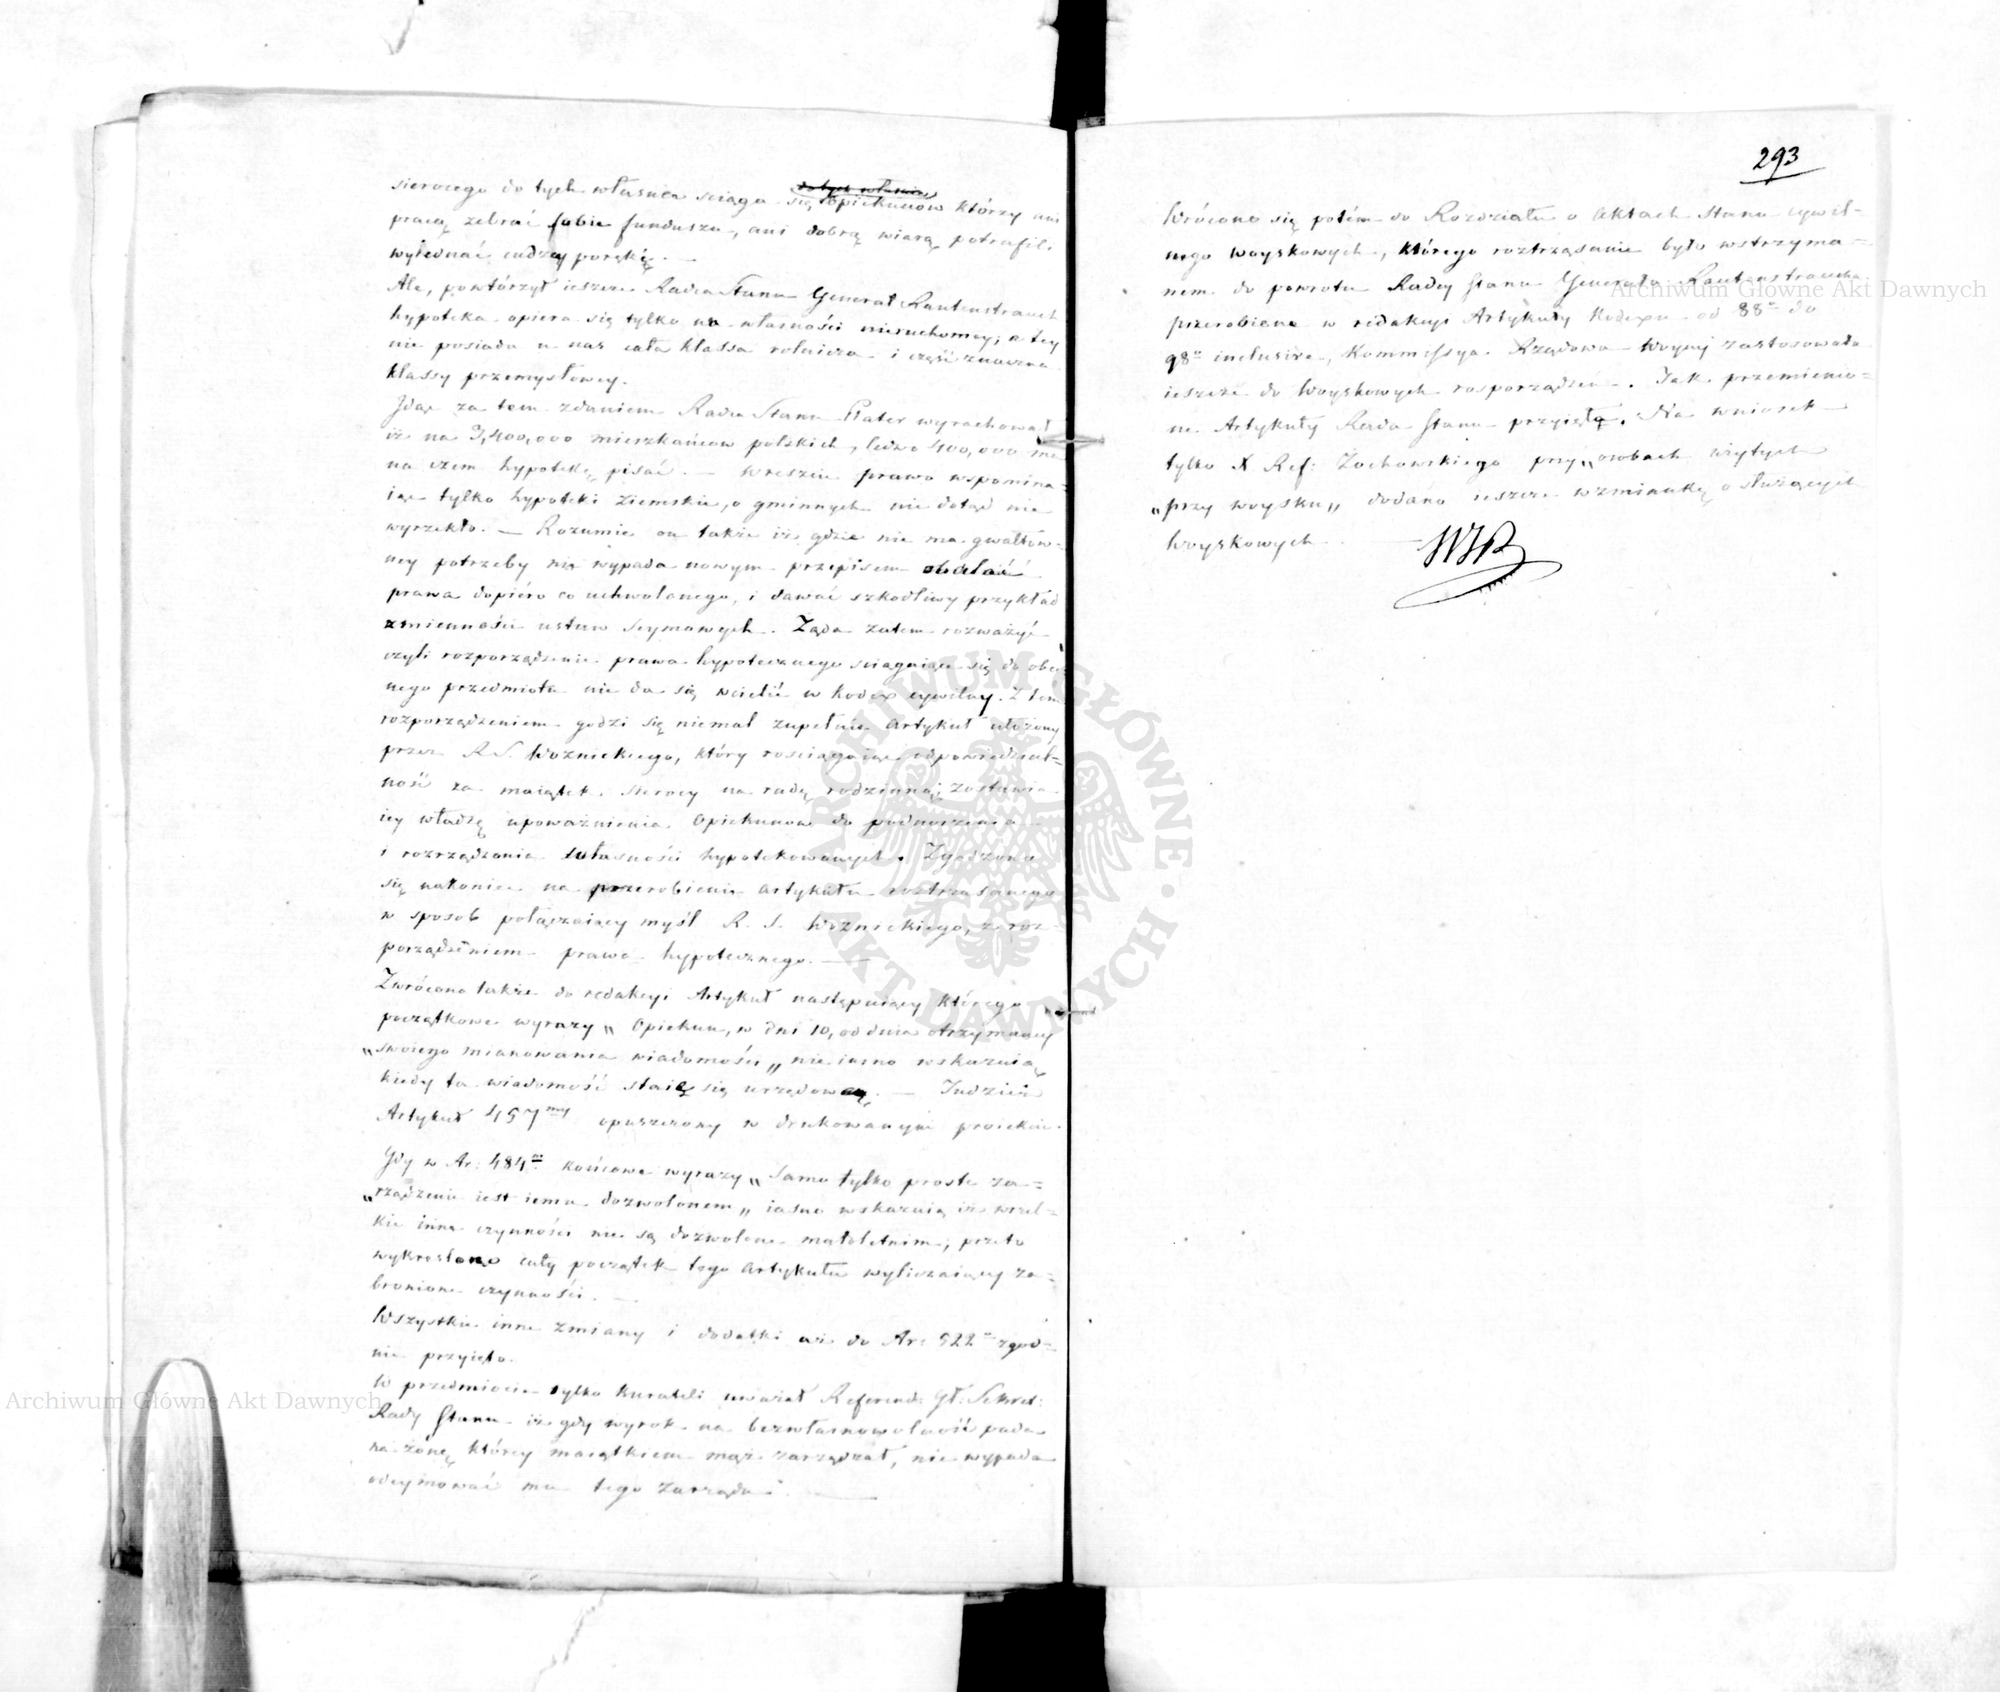 sierocego do tych własnea sciąga się <s>do tych własnie</s> Opiekunów którzy nie
pracą zebrać sobie funduszu, ani dobrą wiarą potrafili
wyiednać cudzey porękę. —
Ale, powtórzył ieszcze Radca Stanu Generał Rautenstrauch
hypoteka opiera się tylko na własności nieruchomey; a tey
nie posiada u nas cała klassa rolnicza i część znaczna
klassy przemysłowey.
Idąc za tem zdaniem Radca Stanu Plater wyrachował
iż na 3,400,000 mieszkańców polskich, ledwo 400,000 ma
na czem hypotekę pisać. — Wreszcie prawo wspomina=
iąc tylko hypoteki ziemskie, o gminnych nic dotąd nie
wyrzekło. — Rozumie on także iż gdzie nie ma gwałtow=
ney potrzeby nie wypada nowym przepisem obalać
prawa dopiéro co uchwalonego, i dawać szkodliwy przykład
zmienności ustaw Seymowych. Żąda zatem rozważyć
czyli rozporządzenie prawa hypotecznego sciągaiące się do obec=
nego przedmiotu nie da się wcielić w Kodex cywilny. Z tem
rozporządzeniem godzi się niemal zupełnie Artykuł ułożony
przez R. S. Woznickiego, który rosciągaiąc odpowiedzial=
ność za maiątek sierocy na radę rodzinną; zostawia
iey władzę upoważnienia Opiekunów do podnoszenia
i rozrządzania własności hypotekowanych. Zgodzono
się nakoniec na przerobienie Artykułu roztrząsanego
w sposob połączaiący myśl R. S. Woznickiego, z roz=
porządzeniem prawa hypotecznego. —
Zwrócono także do redakcyi Artykuł następuiący którego
początkowe wyrazy „ Opiekun, w dni 10, od dnia otrzymaney
„swoiego mianowania wiadomości „ nie iasno wskazuią
kiedy ta wiadomość staie się urzędową. — Tudzież
Artykuł 457my opuszczony w drukowanym proiekcie.
Gdy w Ar: 484m końcowe wyrazy „ Samo tylko proste za=
„rządzenie iest iemu dozwolonem „ iasno wskazuią iż wszel=
kie inne czynności nie są dozwolone małoletnim; przeto
wykreslono cały początek tego Artykułu wyliczaiący za=
bronione czynności. —
Wszystkie inne zmiany i dodatki aż do Ar: 522o zgod=
nie przyięto.
W przedmiocie tylko kurateli uważał Referend: Gł: Sekret:
Rady Stanu iż gdy wyrok na bezwłasnowolność pada
na żonę którey maiątkiem mąż zarządzał, nie wypada
odeymować mu tego zarządu. —
293
Wrócono się potém do Rozdziału o Aktach Stanu cywil=
nego woyskowych, którego roztrząsanie było wstrzyma=
nem do powrotu Radcy Stanu Generała Rautenstraucha
przerobione w redakcyi Artykuły Kodexu od 88o do
98o inclusive, Kommissya Rządowa Woyny zastosowała
ieszcze do Woyskowych rosporządzeń. Tak przemienio=
ne Artykuły Rada Stanu przyięła. Na wniosek
tylko X Ref: Żochowskiego przy „osobach użytych
„przy woysku„ dodano ieszcze wzmiankę o służących
Woyskowych. —
Archiwum Główne Akt Dawnych
Archiwum Główne Akt Dawnych
ARCHIWUM GŁÓWNE · AKT DAWNYCH ·